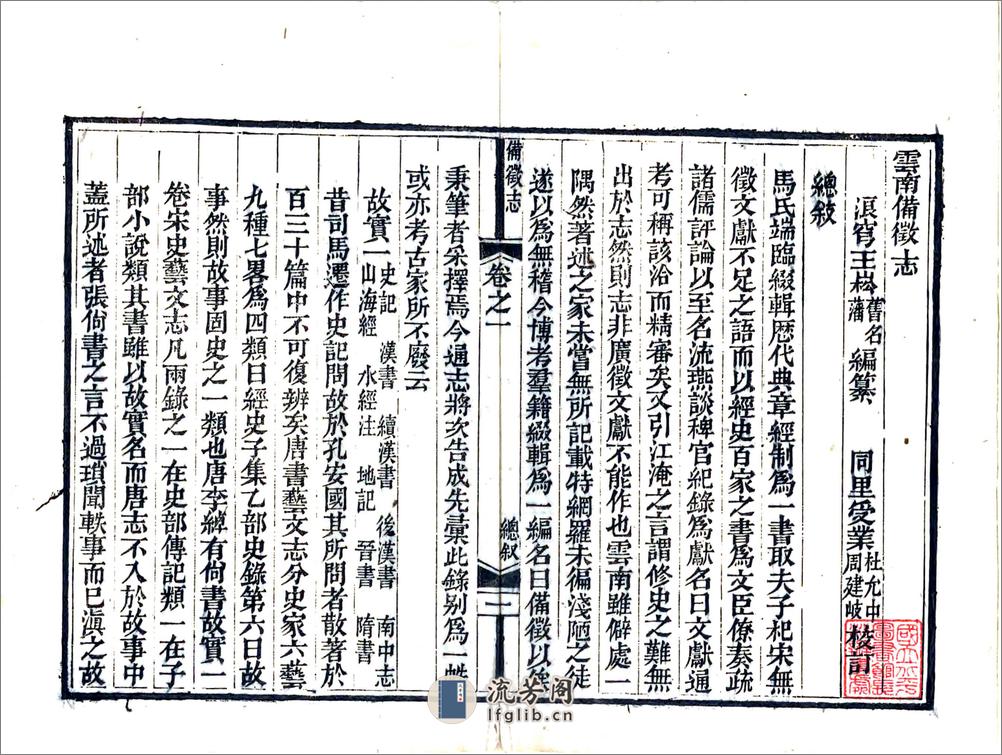 雲南備徵志
浪穹王崧舊名藩編纂　同里受業杜允中周建岐校訂
總敘
馬氏端臨綴輯歷代典章經制為一書取夫子杞宋無
徵文獻不足之語而以經史百家之書為文臣僚奏疏
諸儒評論以至名流燕談稗官紀錄為獻名曰文獻通
考可稱該洽而精審矣又引江淹之言謂修史之難無
出於志然則志非廣徵文獻不能作也雲南雖僻處一
隅然著述之家未嘗無所記載特網羅未徧淺陋之徒
遂以為無稽今博考羣籍綴輯為一編名曰備徵以俟
秉筆者采擇焉今通志將次告成先彙此錄别為一帙
或亦考古家所不廢云
備徵志　卷之一　總敘　一
故實一史記　漢書　續漢書　後漢書　南中志　山海經　水經注　地記　晉書　隋書
昔司馬遷作史記問故於孔安國其所問者散著於
百三十篇中不可復辨矣唐書藝文志分史家六藝
九種七畧為四類曰經史子集乙部史錄第六曰故
事然則故事固史之一類也唐李綽有尙書故實一
卷宋史藝文志凡兩錄之一在史部傳記類一在子
部小說類其書雖以故實名而唐志不入於故事中
蓋所述者張尙書之言不過瑣聞軼事而已滇之故
流芳阁
lfglib.cn